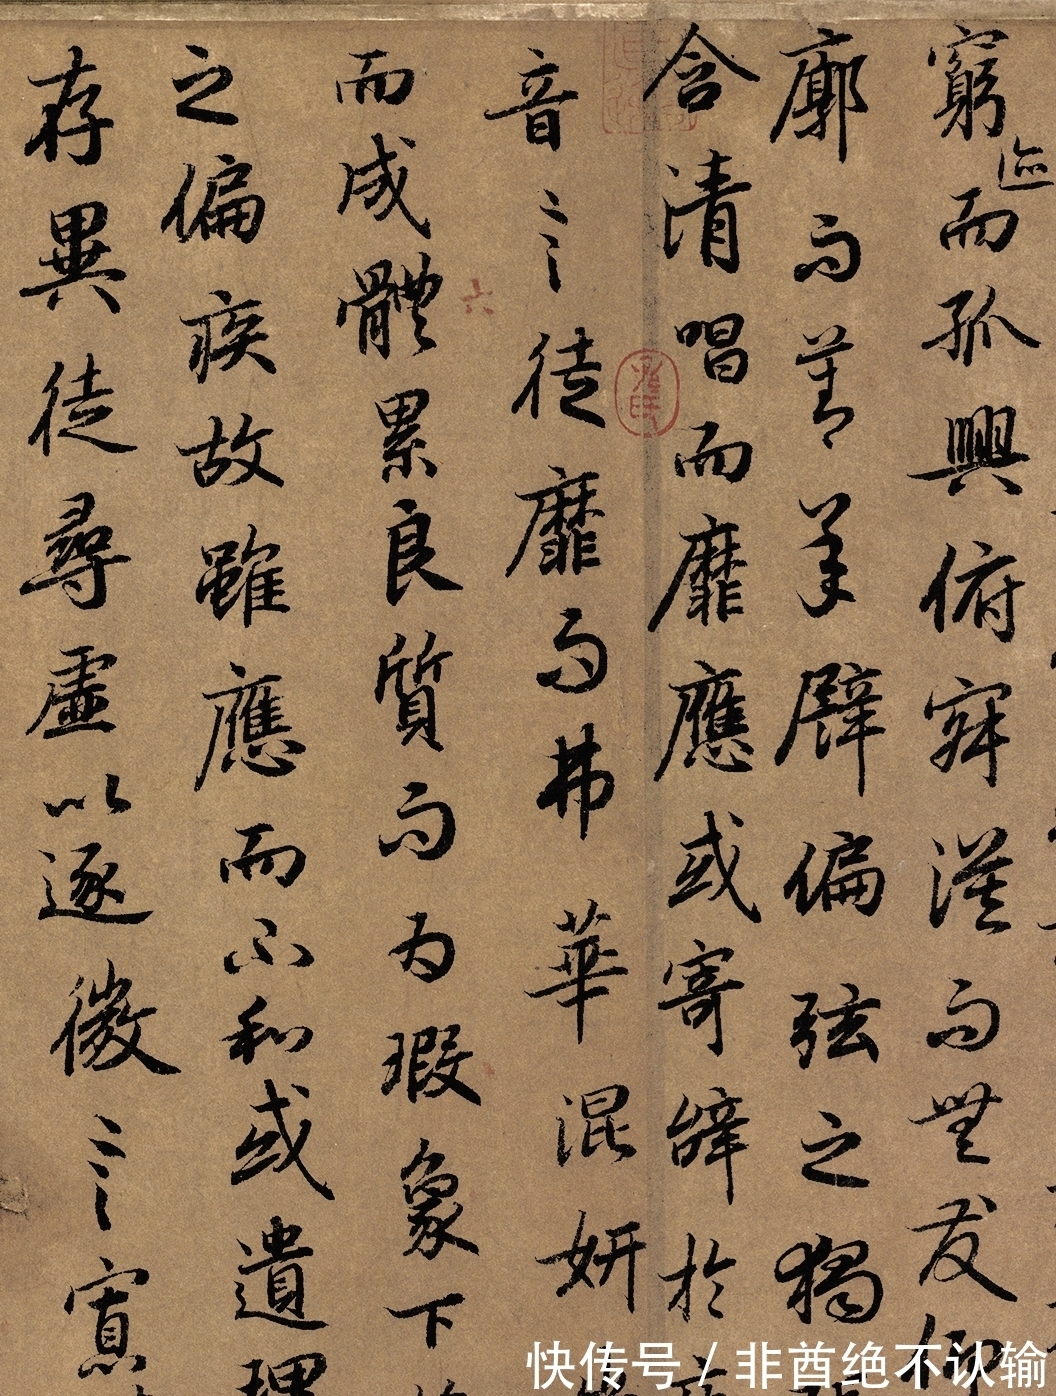 窮迹而孤興俯寂漠而無友仰
廓而莫承譬偏弦之獨
含清唱而靡應或寄辭於
音言徒靡而弗華混妍
而成體累良質而為瑕象下
之偏疾故雖應而不和或遺理
存異徒尋虛以逐微言寡
六
快传号/非酋绝不认输